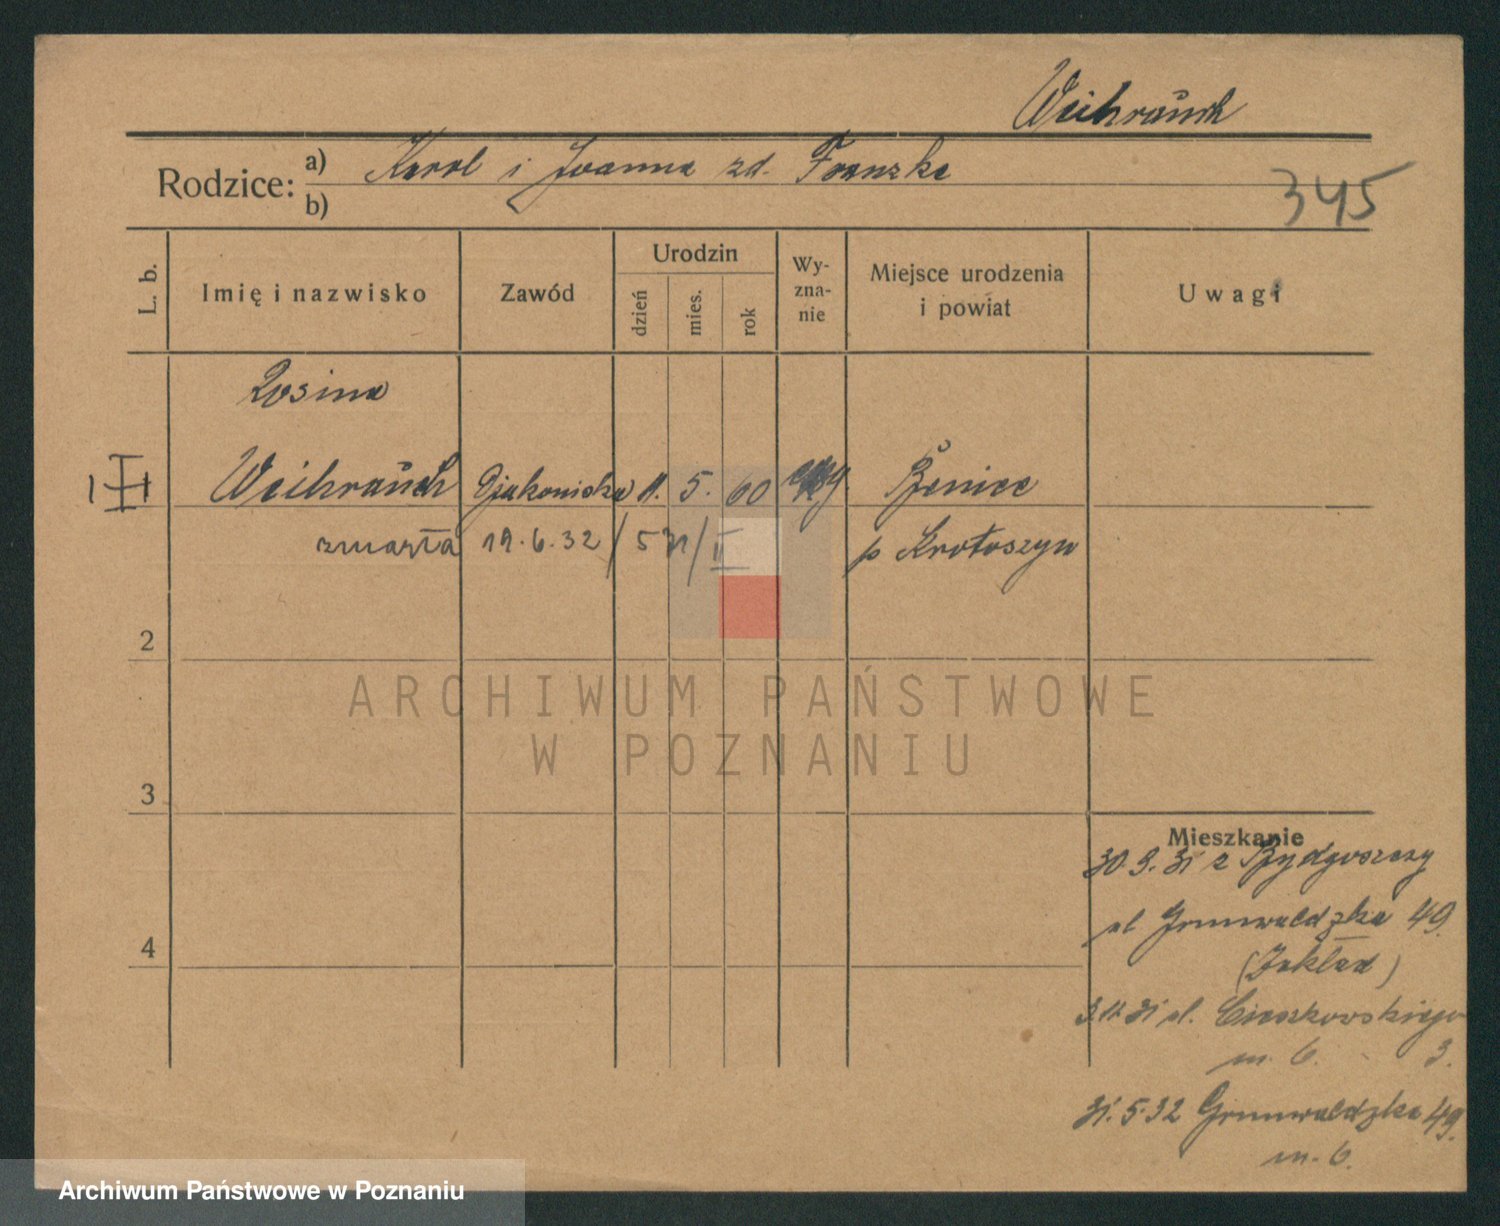 Weihrauch
Rodzice: a) Karol i Joanna zd. Franzke
b)
345
L. b.
Imię i nazwisko
Zawód
Urodzin
dzień
mies.
rok
Wy-
zna-
nie
Miejsce urodzenia
i powiat
Uwagi
Rosina
Weihrauch Djakoniska 11. 5. 60 Benice
zmarła 19.6.32 / 531 / II p Krotoszyn
2
3
4
Mieszkanie
30.9.31 z Bydgoszczy
ul Grunwaldzka 49.
(Zakład)
3.11.31 ul. Cieszkowskiego
m. 6. 3.
31.5.32 Grunwaldzka 49.
m. 6.
ARCHIWUM PAŃSTWOWE
W POZNANIU
Archiwum Państwowe w Poznaniu